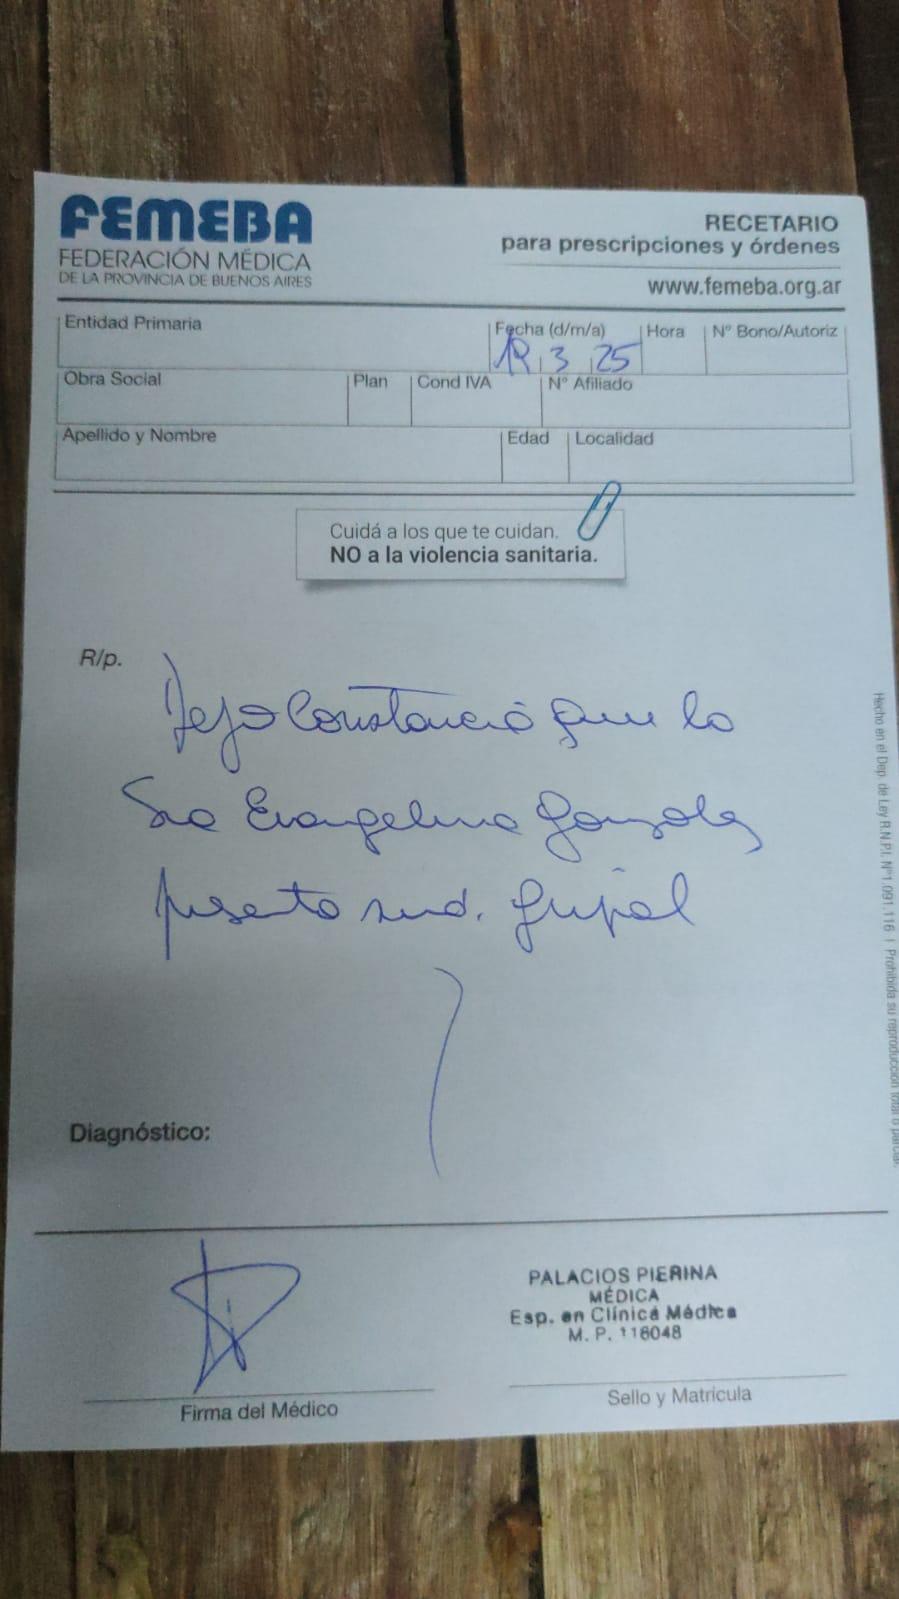 FEMEBA
FEDERACIÓN MÉDICA
DE LA PROVINCIA DE BUENOS AIRES
RECETARIO
para prescripciones y órdenes
www.femeba.org.ar
Entidad Primaria
Fecha (d/m/a)
Hora
N° Bono/Autoriz
3 25
Obra Social
Plan
Cond IVA
N° Afiliado
Apellido y Nombre
Edad
Localidad
Cuidá a los que te cuidan.
NO a la violencia sanitaria.
R/p.
Dejo Constancia que la
Sra Evangelina Gonzalez
presenta sind. gripal
Diagnóstico:
PALACIOS PIERINA
MÉDICA
Esp. en Clínica Médica
M. P. 116048
Firma del Médico
Sello y Matrícula
Hecho en el Dep. de Ley R.N.P.I. N°1.091.116 | Prohibida su reproducción total o parcial.